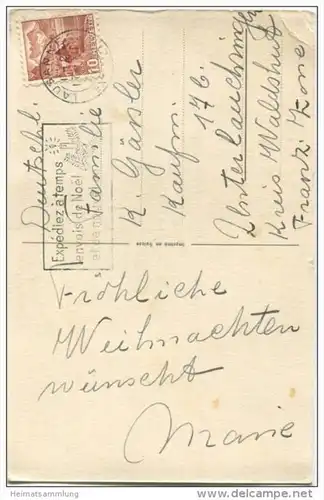 LAUSANNE
10
Expédiez à temps
envois de Noël
et
Deutschl.
Familie
K. Gässler
Kaufm.
176.
Unterlauchringen
Kreis Waldshut
Franz. Zone
Imprimé en Suisse
Fröhliche
Weihnachten
wünscht
Marie
Heimatsammlung
delcampe.net